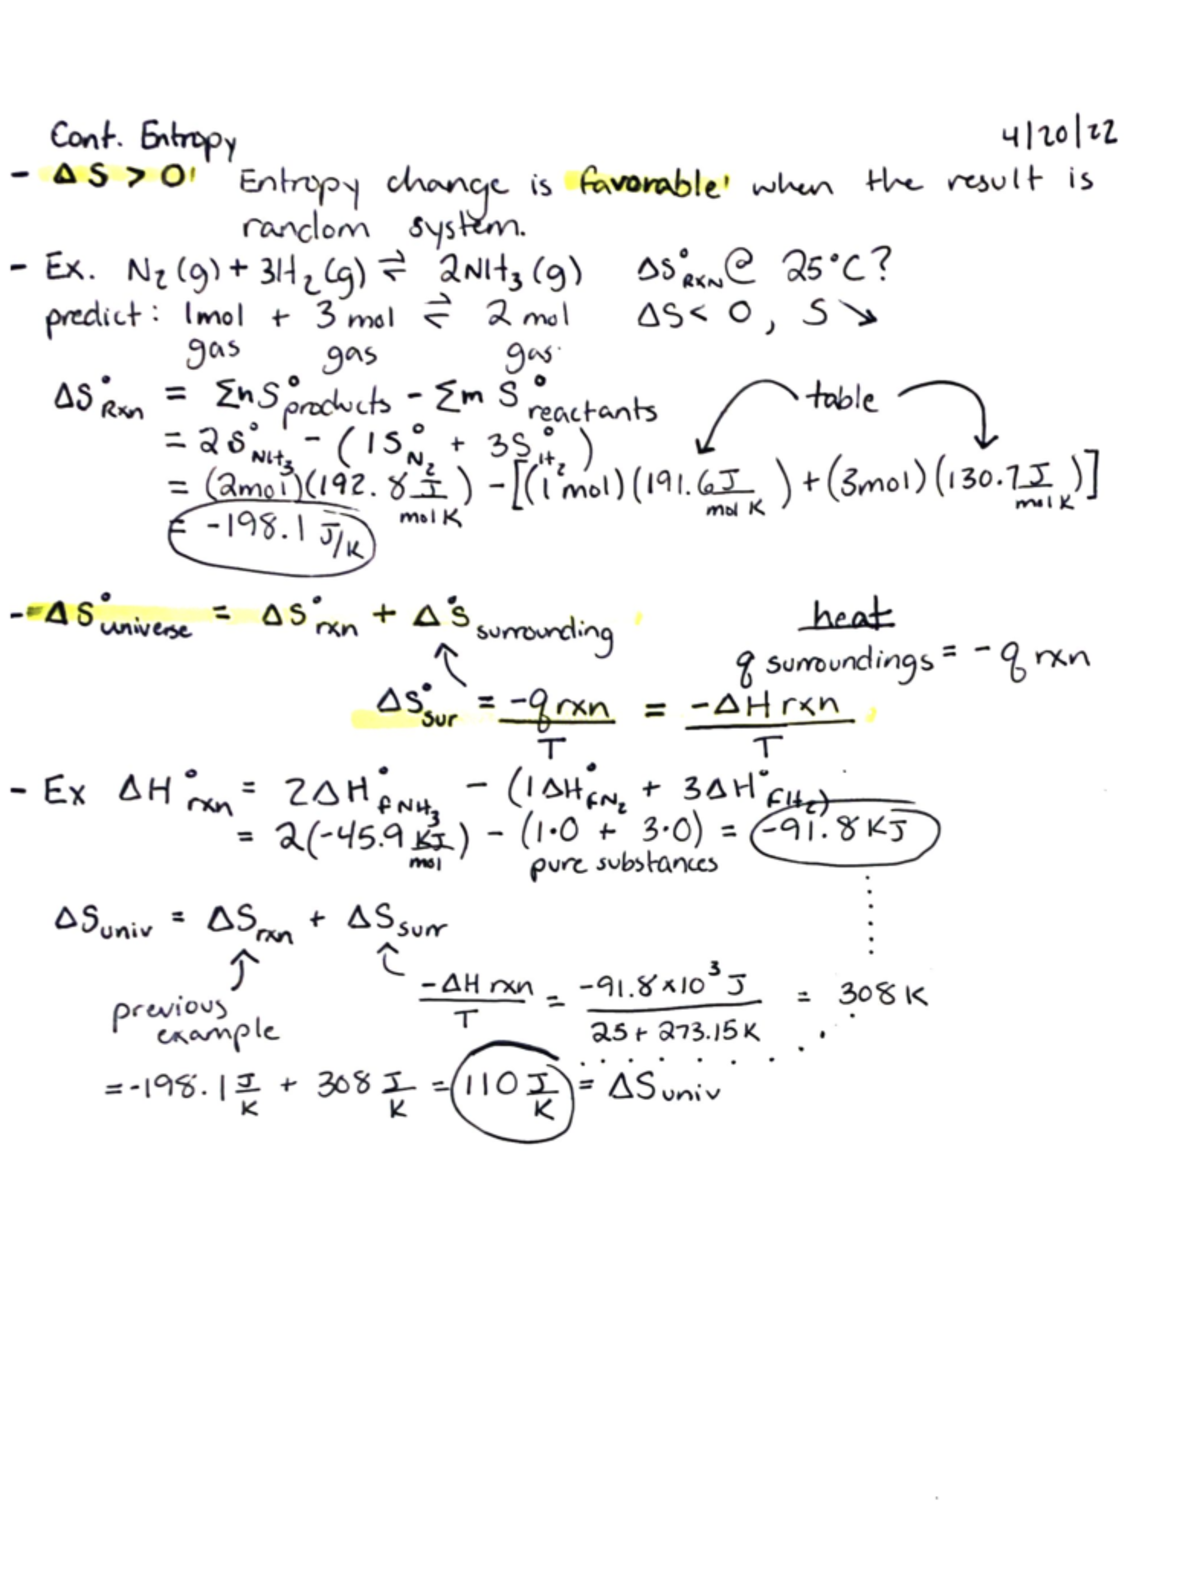 Cont. Entropy 4/20/22
- ΔS > 0 Entropy change is favorable when the result is
random system.
- Ex. N₂(g) + 3H₂(g) ⇌ 2NH₃(g) ΔS°RXN @ 25°C?
predict: 1mol + 3 mol ⇌ 2 mol ΔS < 0, S ↘
gas gas gas
ΔS°Rxn = ΣnS°products - Σm S°reactants table
= 2S°NH₃ - (1S°N₂ + 3S°H₂)
= (2mol)(192.8 J/mol K) - [(1 mol)(191.6 J/mol K) + (3mol)(130.7 J/mol K)]
= -198.1 J/K
- ΔS°universe = ΔS°rxn + Δ°S surrounding heat
q surroundings = -q rxn
ΔS°sur = -q rxn/T = -ΔH rxn/T
- Ex ΔH°rxn = 2ΔH°f NH₃ - (1ΔH°f N₂ + 3ΔH°f H₂)
= 2(-45.9 KJ/mol) - (1·0 + 3·0) = -91.8 KJ
pure substances
ΔSuniv = ΔSrxn + ΔSsurr
previous example
-ΔH rxn/T = -91.8×10³ J/25+273.15K = 308 K
= -198.1 J/K + 308 J/K = 110 J/K = ΔSuniv